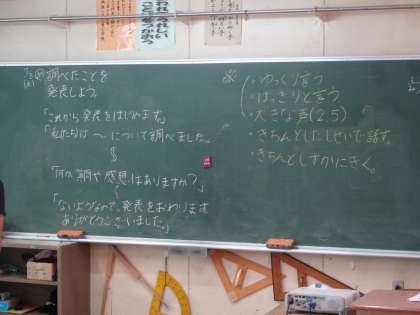 調べたことを
発表しよう。
「これから発表をはじめます。」
「私たちは〜について調べました。」
「何か質問や感想はありますか？」
「ないようなので、発表をおわります
ありがとうございました。」
※
・ゆっくり言う
・はっきりと言う
・大きな声(2,5)
・きちんとしたしせいで話す。
・きちんとしずかにきく。